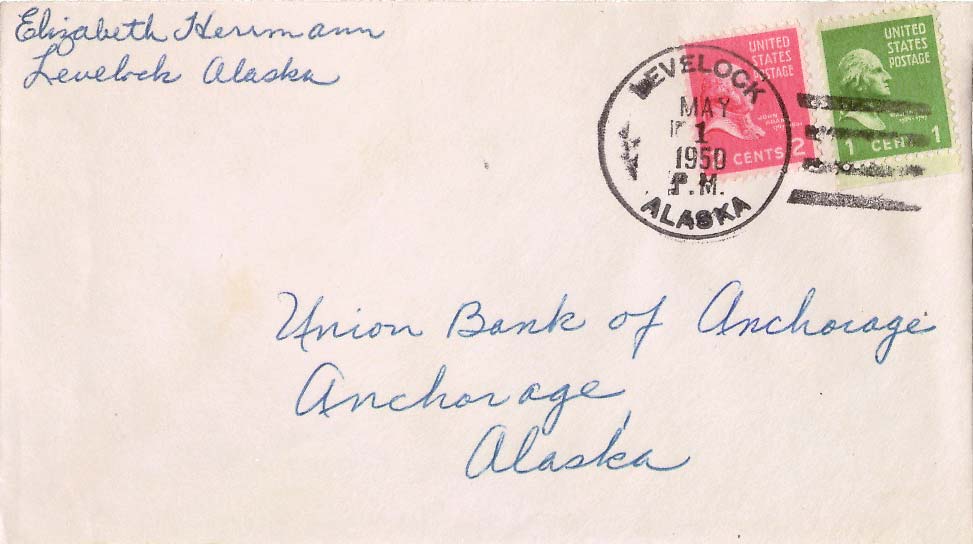 Elizabeth Herrmann
Levelock Alaska
LEVELOCK
MAY
1
1950
P.M.
ALASKA
UNITED
STATES
POSTAGE
JOHN ADAMS
CENTS 2
UNITED
STATES
POSTAGE
1 CENT 1
Union Bank of Anchorage
Anchorage,
Alaska